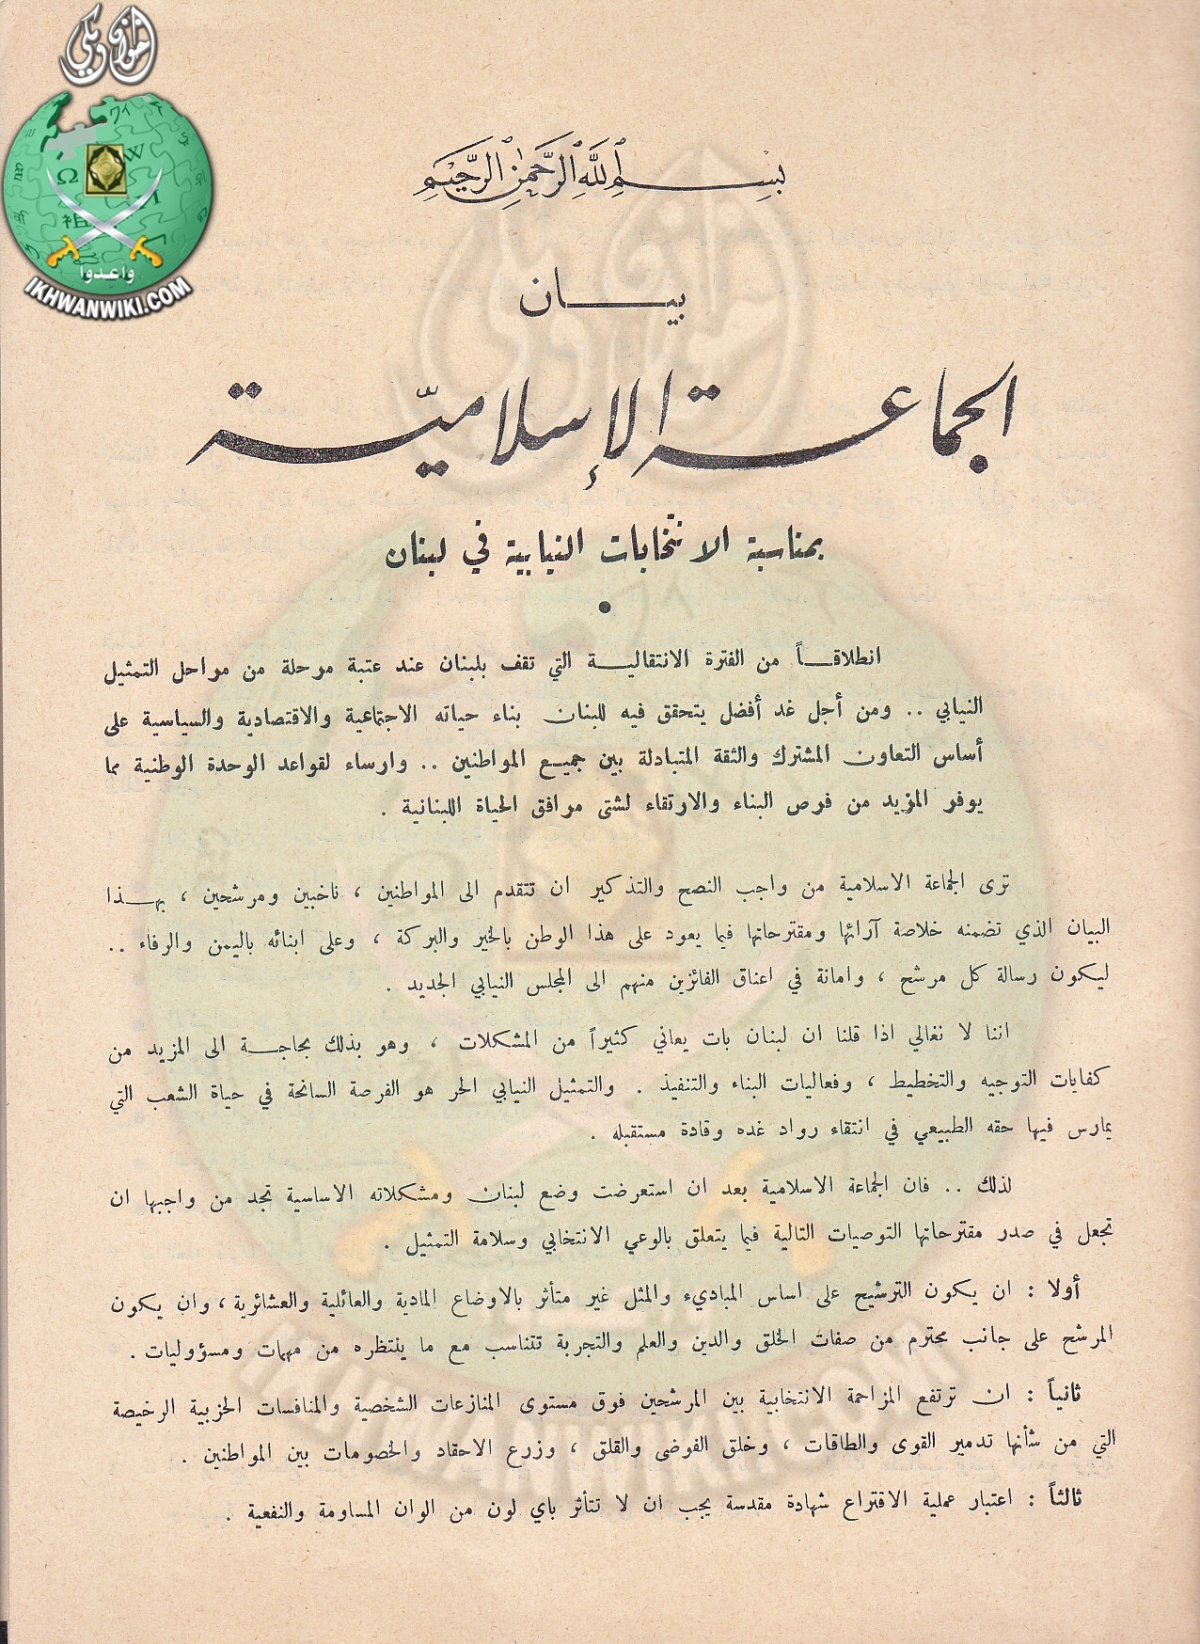 اخوان ويكي
واعدوا
IKHWANWIKI.COM
بسم الله الرحمن الرحيم
بيـــان
الجماعة الإسلاميّة
بمناسبة الانتخابات النيابية في لبنان
انطلاقـاً من الفترة الانتقاليـة التي تقف بلبنان عند عتبة مرحلة من مراحل التمثيل
النيابي .. ومن أجل غد أفضل يتحقق فيه للبنان بناء حياته الاجتماعية والاقتصادية والسياسية على
أساس التعاون المشترك والثقة المتبادلة بين جميع المواطنين .. وارساء لقواعد الوحدة الوطنية مما
يوفر المزيد من فرص البناء والارتقاء لشتى مرافق الحياة اللبنانية .
ترى الجماعة الاسلامية من واجب النصح والتذكير ان تتقدم الى المواطنين ، ناخبين ومرشحين ، بهـذا
البيان الذي تضمنه خلاصة آرائها ومقترحاتها فيما يعود على هذا الوطن بالخير والبركة ، وعلى ابنائه باليمن والرفاء ..
ليكون رسالة كل مرشح ، وامانة في اعناق الفائزين منهم الى المجلس النيابي الجديد .
اننا لا نغالي اذا قلنا ان لبنان بات يعاني كثيراً من المشكلات ، وهو بذلك بحاجـة الى المزيد من
كفايات التوجيه والتخطيط ، وفعاليات البناء والتنفيذ . والتمثيل النيابي الحر هو الفرصة السانحة في حياة الشعب التي
يمارس فيها حقه الطبيعي في انتقاء رواد غده وقادة مستقبله .
لذلك .. فان الجماعة الاسلامية بعد ان استعرضت وضع لبنان ومشكلاته الاساسية تجد من واجبها ان
تجعل في صدر مقترحاتها التوصيات التالية فيما يتعلق بالوعي الانتخابي وسلامة التمثيل .
أولا : ان يكون الترشيح على اساس المباديء والمثل غير متأثر بالاوضاع المادية والعائلية والعشائرية ، وان يكون
المرشح على جانب محترم من صفات الخلق والدين والعلم والتجربة تتناسب مع ما ينتظره من مهمات ومسؤوليات .
ثانياً : ان ترتفع المزاحمة الانتخابية بين المرشحين فوق مستوى المنازعات الشخصية والمنافسات الحزبية الرخيصة
التي من شأنها تدمير القوى والطاقات ، وخلق الفوضى والقلق ، وزرع الاحقاد والخصومات بين المواطنين .
ثالثاً : اعتبار عملية الاقتراع شهادة مقدسة يجب ان لا تتأثر باي لون من الوان المساومة والنفعية .